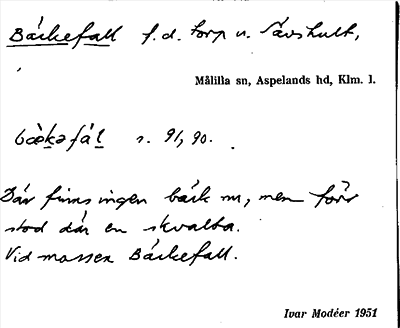 Bäckefall f.d. torp u. Sävshult,
Målilla sn, Aspelands hd, Klm. l.
bæ̀kəfál s. 91, 90.
Där finns ingen bäck nu, men förr
stod där en skvalta.
Vid mossen Bäckefall.
Ivar Modéer 1951